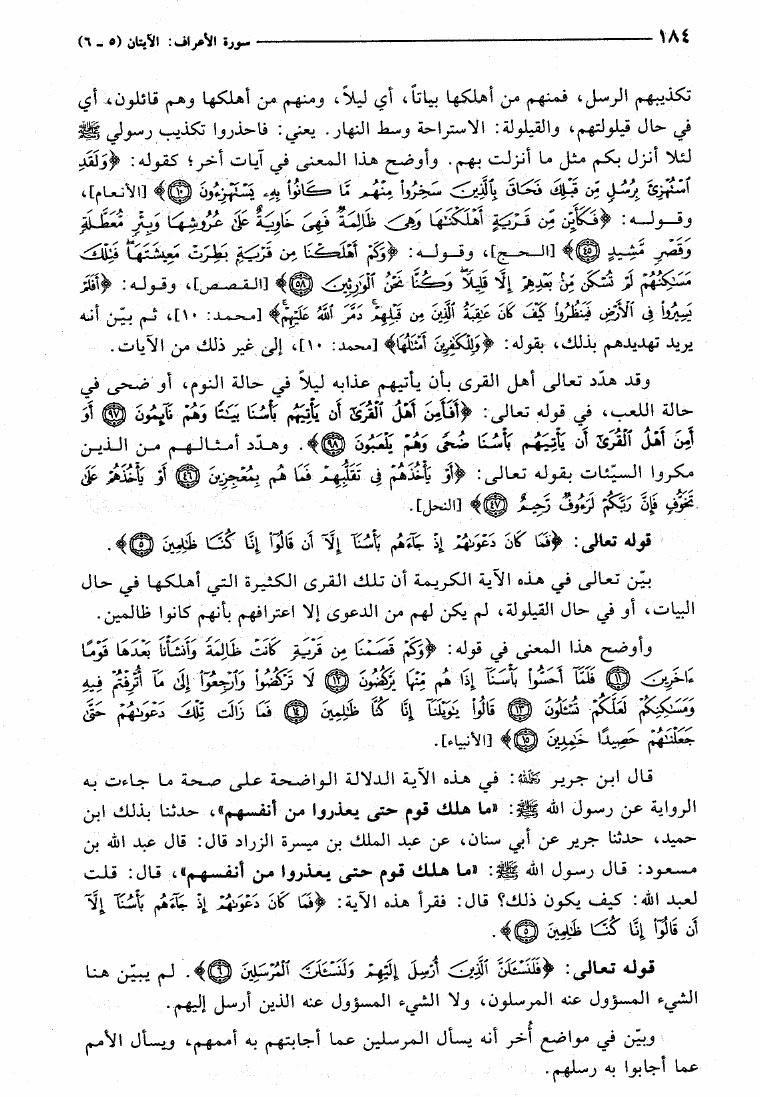 ١٨٤ سورة الأعراف: الآيتان (٥ ـ ٦)
تكذيبهم الرسل، فمنهم من أهلكها بياتاً، أي ليلاً، ومنهم من أهلكها وهم قائلون، أي
في حال قيلولتهم، والقيلولة: الاستراحة وسط النهار. يعني: فاحذروا تكذيب رسولي ﷺ
لئلا أنزل بكم مثل ما أنزلت بهم. وأوضح هذا المعنى في آيات أخر؛ كقوله: ﴿وَلَقَدِ
ٱسْتُهْزِئَ بِرُسُلٍ مِّن قَبْلِكَ فَحَاقَ بِٱلَّذِينَ سَخِرُوا۟ مِنْهُم مَّا كَانُوا۟ بِهِۦ يَسْتَهْزِءُونَ ١٠﴾ [الأنعام]،
وقوله: ﴿فَكَأَيِّن مِّن قَرْيَةٍ أَهْلَكْنَٰهَا وَهِىَ ظَالِمَةٌ فَهِىَ خَاوِيَةٌ عَلَىٰ عُرُوشِهَا وَبِئْرٍ مُّعَطَّلَةٍ
وَقَصْرٍ مَّشِيدٍ ٤٥﴾ [الحج]، وقوله: ﴿وَكَمْ أَهْلَكْنَا مِن قَرْيَةٍۭ بَطِرَتْ مَعِيشَتَهَا ۖ فَتِلْكَ
مَسَٰكِنُهُمْ لَمْ تُسْكَن مِّنۢ بَعْدِهِمْ إِلَّا قَلِيلًا ۖ وَكُنَّا نَحْنُ ٱلْوَٰرِثِينَ ٥٨﴾ [القصص]، وقوله: ﴿أَفَلَمْ
يَسِيرُوا۟ فِى ٱلْأَرْضِ فَيَنظُرُوا۟ كَيْفَ كَانَ عَٰقِبَةُ ٱلَّذِينَ مِن قَبْلِهِمْ ۚ دَمَّرَ ٱللَّهُ عَلَيْهِمْ ۖ﴾ [محمد: ١٠]، ثم بيّن أنه
يريد تهديدهم بذلك، بقوله: ﴿وَلِلْكَٰفِرِينَ أَمْثَٰلُهَا﴾ [محمد: ١٠]، إلى غير ذلك من الآيات.
وقد هدّد تعالى أهل القرى بأن يأتيهم عذابه ليلاً في حالة النوم، أو ضحى في
حالة اللعب، في قوله تعالى: ﴿أَفَأَمِنَ أَهْلُ ٱلْقُرَىٰٓ أَن يَأْتِيَهُم بَأْسُنَا بَيَٰتًا وَهُمْ نَآئِمُونَ ٩٧ أَوَ
أَمِنَ أَهْلُ ٱلْقُرَىٰٓ أَن يَأْتِيَهُم بَأْسُنَا ضُحًى وَهُمْ يَلْعَبُونَ ٩٨﴾. وهدّد أمثالهم من الذين
مكروا السيّئات بقوله تعالى: ﴿أَوْ يَأْخُذَهُمْ فِى تَقَلُّبِهِمْ فَمَا هُم بِمُعْجِزِينَ ٤٦ أَوْ يَأْخُذَهُمْ عَلَىٰ
تَخَوُّفٍ فَإِنَّ رَبَّكُمْ لَرَءُوفٌ رَّحِيمٌ ٤٧﴾ [النحل].
قوله تعالى: ﴿فَمَا كَانَ دَعْوَىٰهُمْ إِذْ جَآءَهُم بَأْسُنَآ إِلَّآ أَن قَالُوٓا۟ إِنَّا كُنَّا ظَٰلِمِينَ ٥﴾.
بيّن تعالى في هذه الآية الكريمة أن تلك القرى الكثيرة التي أهلكها في حال
البيات، أو في حال القيلولة، لم يكن لهم من الدعوى إلا اعترافهم بأنهم كانوا ظالمين.
وأوضح هذا المعنى في قوله: ﴿وَكَمْ قَصَمْنَا مِن قَرْيَةٍ كَانَتْ ظَالِمَةً وَأَنشَأْنَا بَعْدَهَا قَوْمًا
ءَاخَرِينَ ١١ فَلَمَّآ أَحَسُّوا۟ بَأْسَنَآ إِذَا هُم مِّنْهَا يَرْكُضُونَ ١٢ لَا تَرْكُضُوا۟ وَٱرْجِعُوٓا۟ إِلَىٰ مَآ أُتْرِفْتُمْ فِيهِ
وَمَسَٰكِنِكُمْ لَعَلَّكُمْ تُسْـَٔلُونَ ١٣ قَالُوا۟ يَٰوَيْلَنَآ إِنَّا كُنَّا ظَٰلِمِينَ ١٤ فَمَا زَالَت تِّلْكَ دَعْوَىٰهُمْ حَتَّىٰ
جَعَلْنَٰهُمْ حَصِيدًا خَٰمِدِينَ ١٥﴾ [الأنبياء].
قال ابن جرير رحمه الله: في هذه الآية الدلالة الواضحة على صحة ما جاءت به
الرواية عن رسول الله ﷺ: «ما هلك قوم حتى يعذروا من أنفسهم»، حدثنا بذلك ابن
حميد، حدثنا جرير عن أبي سنان، عن عبد الملك بن ميسرة الزراد قال: قال عبد الله بن
مسعود: قال رسول الله ﷺ: «ما هلك قوم حتى يعذروا من أنفسهم»، قال: قلت
لعبد الله: كيف يكون ذلك؟ قال: فقرأ هذه الآية: ﴿فَمَا كَانَ دَعْوَىٰهُمْ إِذْ جَآءَهُم بَأْسُنَآ إِلَّآ
أَن قَالُوٓا۟ إِنَّا كُنَّا ظَٰلِمِينَ ٥﴾.
قوله تعالى: ﴿فَلَنَسْـَٔلَنَّ ٱلَّذِينَ أُرْسِلَ إِلَيْهِمْ وَلَنَسْـَٔلَنَّ ٱلْمُرْسَلِينَ ٦﴾. لم يبيّن هنا
الشيء المسؤول عنه المرسلون، ولا الشيء المسؤول عنه الذين أرسل إليهم.
وبيّن في مواضع أُخر أنه يسأل المرسلين عما أجابتهم به أممهم، ويسأل الأمم
عما أجابوا به رسلهم.